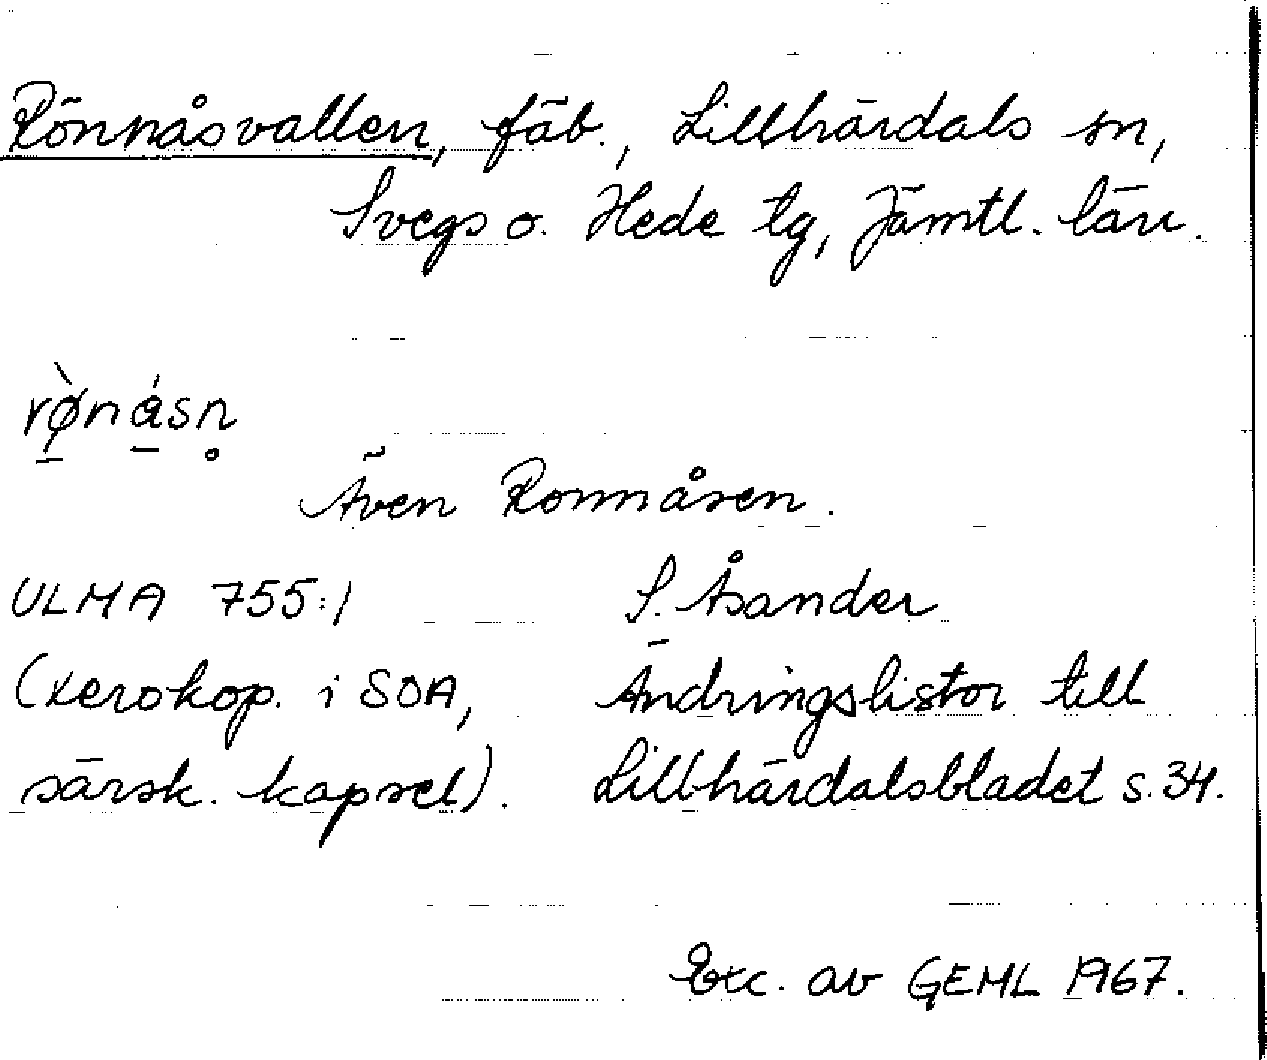 Rönnåsvallen, fäb., Lillhärdals sn,
Svegs o. Hede tg, Jämtl. län.
rø̠̀ná̠sn̥
Även Ronnåsen.
ULMA 755:1 S. Åsander
(xerokop. i SOA, Ändringslistor till
särsk. kapsel). Lillhärdalsbladet s. 34.
Exc. av GEML 1967.